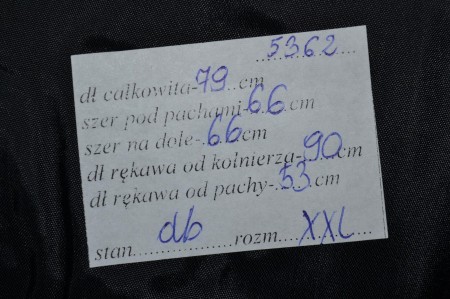 5362
dł całkowita-79 cm
szer pod pachami-66 cm
szer na dole-66 cm
dł rękawa od kołnierza-90 cm
dł rękawa od pachy-53 cm
stan db rozm. XXL